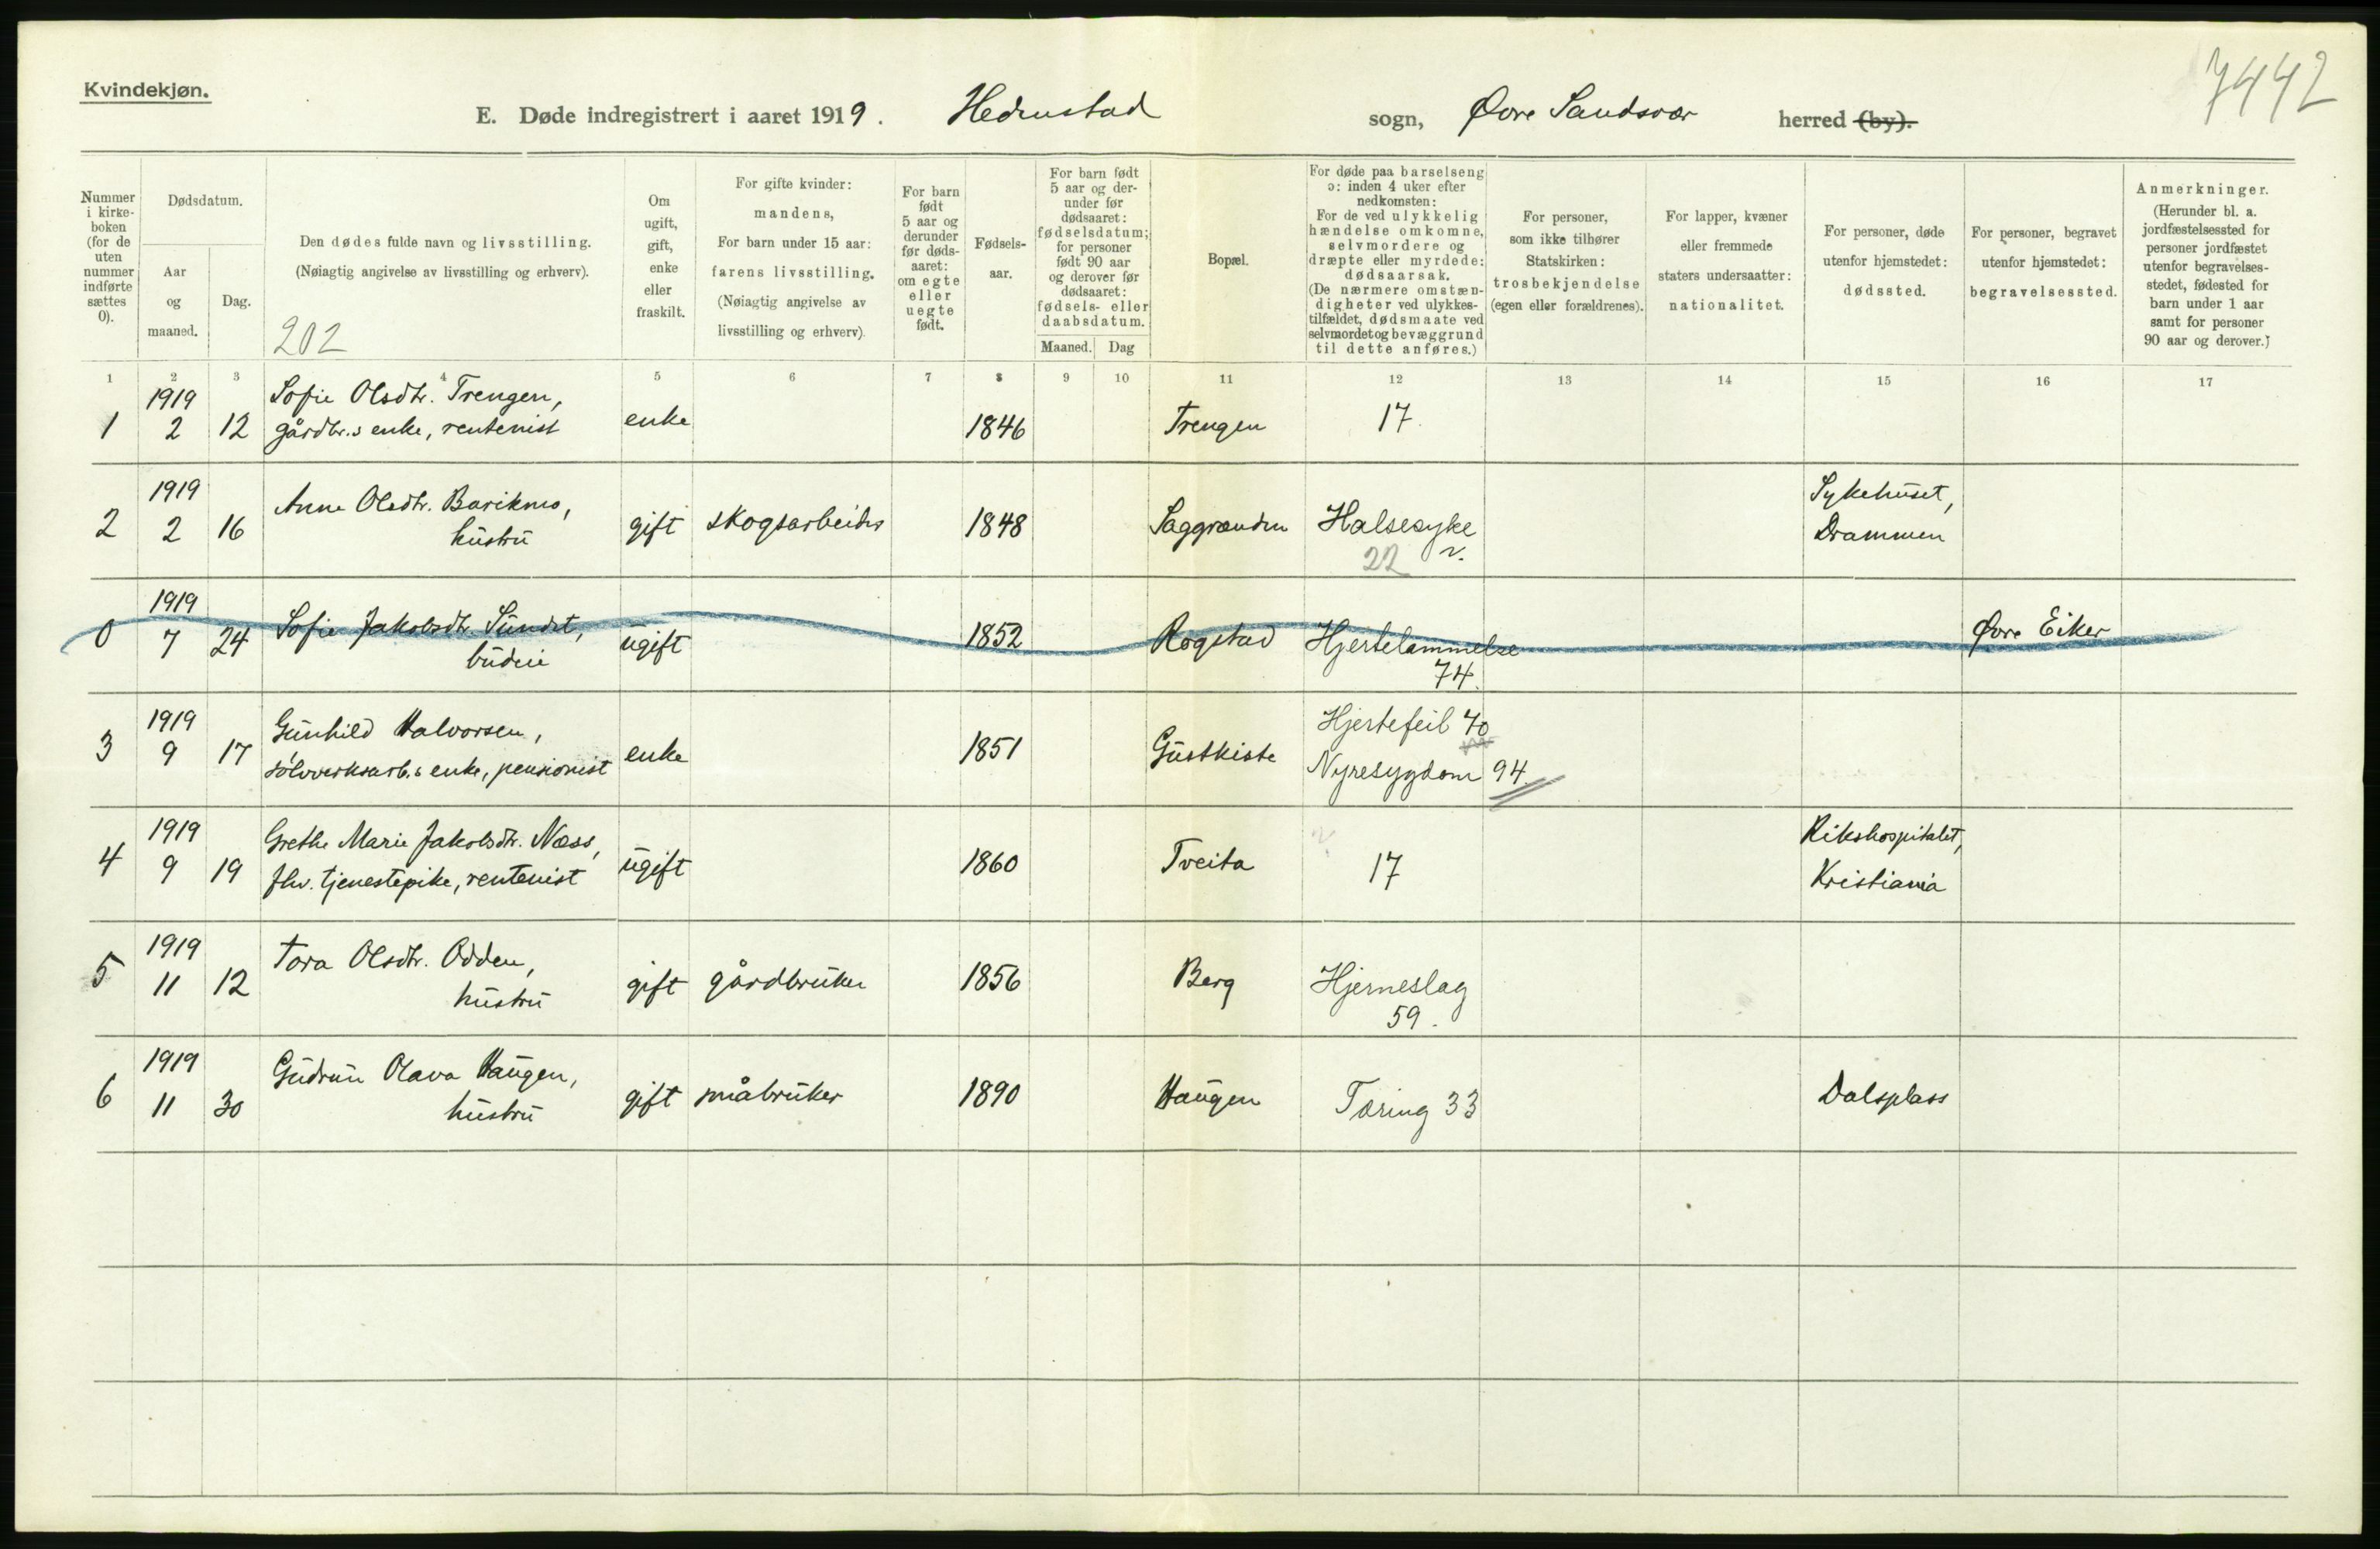 Kvindekjøn.
7442
E. Døde indregistrert i aaret 1919. Hedenstad sogn, Øvre Sandsvær herred (by).
Nummer i kirke- boken (for de uten nummer indførte sættes 0).
Dødsdatum.
Aar og maaned.
Dag.
Den dødes fulde navn og livsstilling.
(Nøiagtig angivelse av livsstilling og erhverv).
202
Om ugift, gift, enke eller fraskilt.
For gifte kvinder: mandens, For barn under 15 aar: farens livsstilling. (Nøiagtig angivelse av livsstilling og erhverv).
For barn født 5 aar og derunder før døds- aaret: om egte eller uegte født.
Fødsels- aar.
For barn født 5 aar og der- under før dødsaaret: fødselsdatum; for personer født 90 aar og derover før dødsaaret: fødsels- eller daabsdatum.
Maaned. Dag
Bopæl.
For døde paa barselseng ɔ: inden 4 uker efter nedkomsten: For de ved ulykkelig hændelse omkomne, selvmordere og dræpte eller myrdede: dødsaarsak. (De nærmere omstæn- digheter ved ulykkes- tilfældet, dødsmaate ved selvmordet og bevæggrund til dette anføres.)
For personer, som ikke tilhører Statskirken: trosbekjendelse (egen eller forældrenes).
For lapper, kvæner eller fremmede staters undersaatter: nationalitet.
For personer, døde utenfor hjemstedet: dødssted.
For personer, begravet utenfor hjemstedet: begravelsessted.
Anmerkninger. (Herunder bl. a. jordfæstelsessted for personer jordfæstet utenfor begravelses- stedet, fødested for barn under 1 aar samt for personer 90 aar og derover.)
1 2 3 4 5 6 7 8 9 10 11 12 13 14 15 16 17
1919 Sofie Olsdtr. Trengen,
1 2 12 gårdbr.s enke, rentenist enke 1846 Trengen 17.
1919 Anne Olsdtr. Barikmo, Sykehuset,
2 2 16 hustru gift skogsarbeider 1848 Saggrænden Halsesyke Drammen
22 v.
1919 Sofie Jakobsdtr. Sundet,
0 7 24 budeie ugift 1852 Rogstad Hjertelammelse Øvre Eiker
74.
1919 Gunhild Halvorsen, Hjertefeil 70
3 9 17 sølvverksarb.s enke, pensionist enke 1851 Gustkiste Nyresygdom 94
1919 Grethe Marie Jakobsdtr. Næss, Rikshospitalet,
4 9 19 fhv. tjenestepike, rentenist ugift 1860 Tveita 17 Kristiania
1919 Tora Olsdtr. Odden,
5 11 12 hustru gift gårdbruker 1856 Berg Hjerneslag
59.
1919 Gudrun Olava Haugen,
6 11 30 hustru gift småbruker 1890 Haugen Tæring 33 Dalsplass